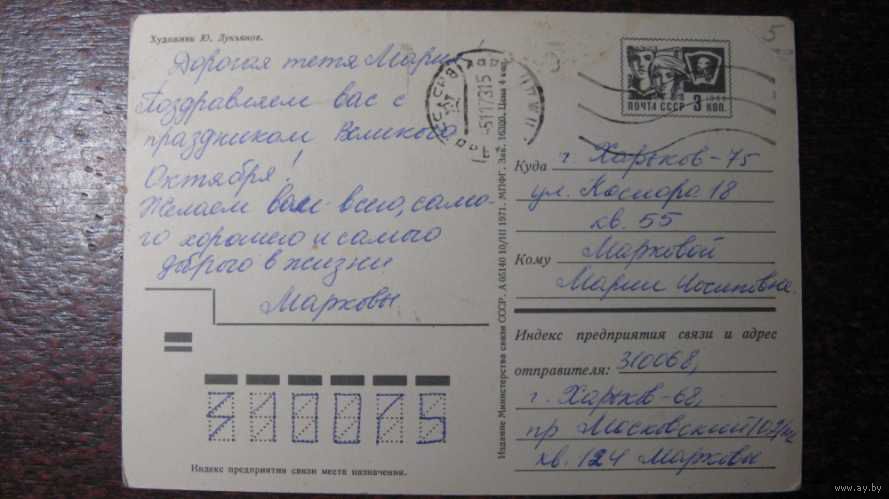 Художник Ю. Лукьянов.
Дорогая тетя Мария!
Поздравляем вас с
праздником Великого
Октября!
Желаем вам всего, само-
го хорошего и самого
доброго в жизни
Марковы
Индекс предприятия связи места назначения.
Издание Министерства связи СССР. А 05140 10/III 1971. МПФГ. Зак. 16300. Цена 4 коп.
5
ПОЧТА СССР 3 КОП.
Куда г. Харьков-75
ул. 18
кв. 55
Кому Марковой
Марии Иосиповне.
Индекс предприятия связи и адрес
отправителя: 310068,
г. Харьков-68,
пр Московский
кв. 124 Марковы
www.ay.by